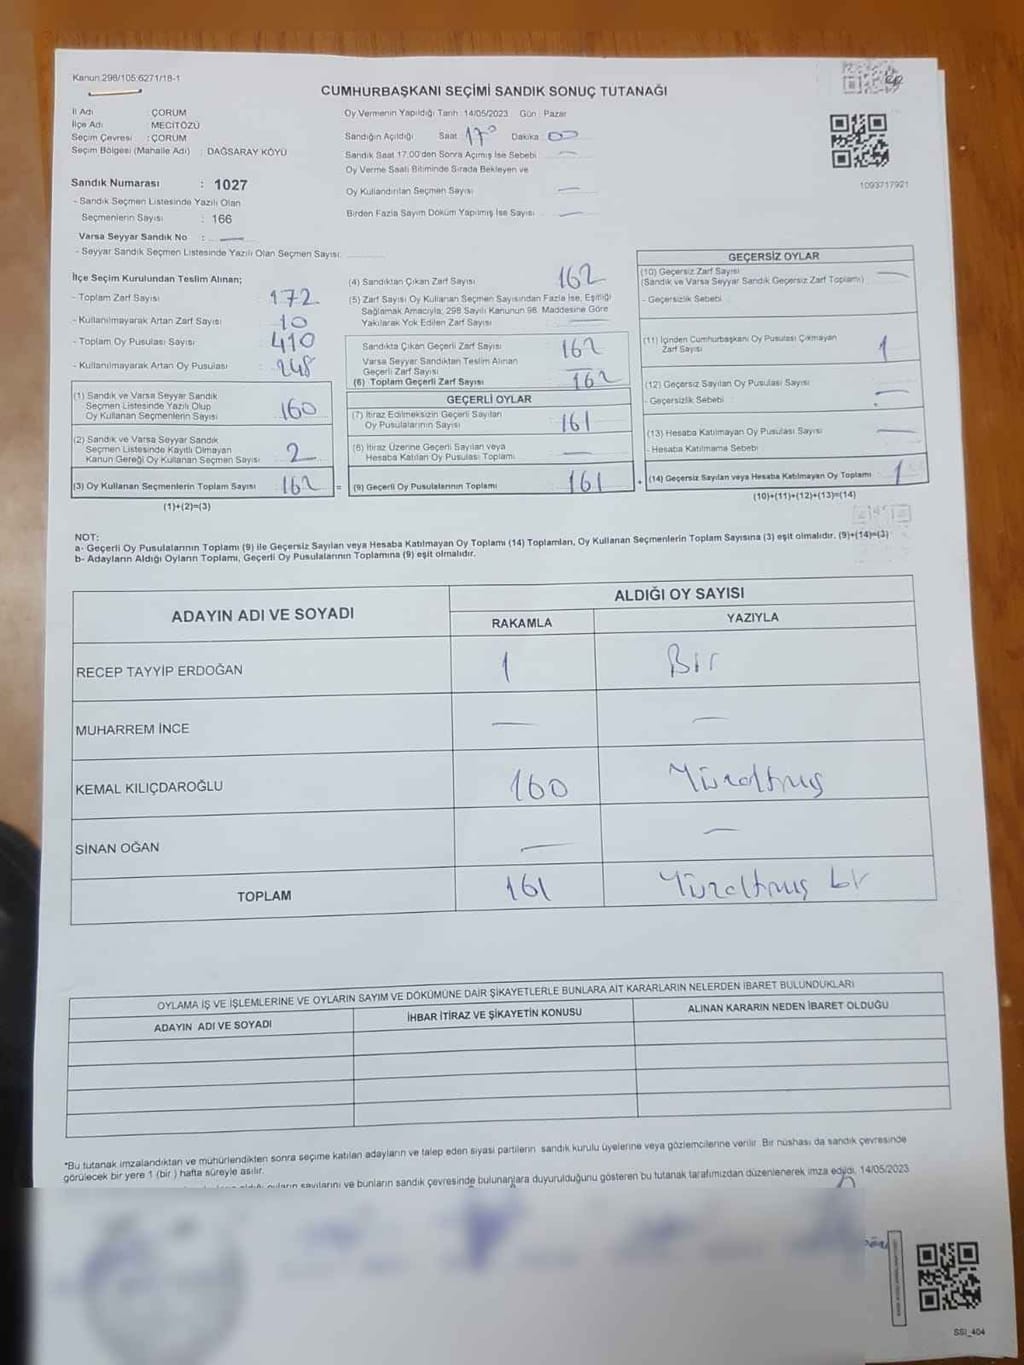 Kanun:298/105;6271/18-1
CUMHURBAŞKANI SEÇİMİ SANDIK SONUÇ TUTANAĞI
İl Adı : ÇORUM
İlçe Adı : MECİTÖZÜ
Seçim Çevresi : ÇORUM
Seçim Bölgesi (Mahalle Adı) : DAĞSARAY KÖYÜ
Sandık Numarası : 1027
- Sandık Seçmen Listesinde Yazılı Olan
Seçmenlerin Sayısı : 166
Varsa Seyyar Sandık No : —
- Seyyar Sandık Seçmen Listesinde Yazılı Olan Seçmen Sayısı:
Oy Vermenin Yapıldığı Tarih :14/05/2023 Gün : Pazar
Sandığın Açıldığı Saat 17° Dakika 00
Sandık Saat 17.00'den Sonra Açımış İse Sebebi —
Oy Verme Saati Bitiminde Sırada Bekleyen ve
Oy Kullandırılan Seçmen Sayısı —
Birden Fazla Sayım Döküm Yapılmış İse Sayısı —
1093717921
İlçe Seçim Kurulundan Teslim Alınan;
- Toplam Zarf Sayısı : 172
- Kullanılmayarak Artan Zarf Sayısı : 10
- Toplam Oy Pusulası Sayısı : 410
- Kullanılmayarak Artan Oy Pusulası : 248
(1) Sandık ve Varsa Seyyar Sandık
Seçmen Listesinde Yazılı Olup
Oy Kullanan Seçmenlerin Sayısı : 160
(2) Sandık ve Varsa Seyyar Sandık
Seçmen Listesinde Kayıtlı Olmayan
Kanun Gereği Oy Kullanan Seçmen Sayısı : 2
(3) Oy Kullanan Seçmenlerin Toplam Sayısı : 162 =
(1)+(2)=(3)
(4) Sandıktan Çıkan Zarf Sayısı 162
(5) Zarf Sayısı Oy Kullanan Seçmen Sayısından Fazla İse, Eşitliği
Sağlamak Amacıyla; 298 Sayılı Kanunun 98. Maddesine Göre
Yakılarak Yok Edilen Zarf Sayısı —
Sandıkta Çıkan Geçerli Zarf Sayısı 162
Varsa Seyyar Sandıktan Teslim Alınan
Geçerli Zarf Sayısı —
(6) Toplam Geçerli Zarf Sayısı 162
GEÇERLİ OYLAR
(7) İtiraz Edilmeksizin Geçerli Sayılan
Oy Pusulalarının Sayısı 161
(8) İtiraz Üzerine Geçerli Sayılan veya
Hesaba Katılan Oy Pusulası Toplamı —
(9) Geçerli Oy Pusulalarının Toplamı 161 +
GEÇERSİZ OYLAR
(10) Geçersiz Zarf Sayısı —
(Sandık ve Varsa Seyyar Sandık Geçersiz Zarf Toplamı)
- Geçersizlik Sebebi :
(11) İçinden Cumhurbaşkanı Oy Pusulası Çıkmayan
Zarf Sayısı 1
(12) Geçersiz Sayılan Oy Pusulası Sayısı —
- Geçersizlik Sebebi :
(13) Hesaba Katılmayan Oy Pusulası Sayısı —
- Hesaba Katılmama Sebebi :
(14) Geçersiz Sayılan veya Hesaba Katılmayan Oy Toplamı : 1
(10)+(11)+(12)+(13)=(14)
NOT:
a- Geçerli Oy Pusulalarının Toplamı (9) ile Geçersiz Sayılan veya Hesaba Katılmayan Oy Toplamı (14) Toplamları, Oy Kullanan Seçmenlerin Toplam Sayısına (3) eşit olmalıdır. (9)+(14)=(3)
b- Adayların Aldığı Oyların Toplamı, Geçerli Oy Pusulalarının Toplamına (9) eşit olmalıdır.
ADAYIN ADI VE SOYADI
ALDIĞI OY SAYISI
RAKAMLA YAZIYLA
RECEP TAYYİP ERDOĞAN 1 Bir
MUHARREM İNCE — —
KEMAL KILIÇDAROĞLU 160 Yüzaltmış
SİNAN OĞAN — —
TOPLAM 161 Yüzaltmış bir
OYLAMA İŞ VE İŞLEMLERİNE VE OYLARIN SAYIM VE DÖKÜMÜNE DAİR ŞİKAYETLERLE BUNLARA AİT KARARLARIN NELERDEN İBARET BULUNDUKLARI
ADAYIN ADI VE SOYADI İHBAR İTİRAZ VE ŞİKAYETİN KONUSU ALINAN KARARIN NEDEN İBARET OLDUĞU
*Bu tutanak imzalandıktan ve mühürlendikten sonra seçime katılan adayların ve talep eden siyasi partilerin sandık kurulu üyelerine veya gözlemcilerine verilir. Bir nüshası da sandık çevresinde
görülecek bir yere 1 (bir ) hafta süreyle asılır.
sayılarını ve bunların sandık çevresinde bulunanlara duyurulduğunu gösteren bu tutanak tarafımızdan düzenlenerek imza edildi. 14/05/2023
SSI_404